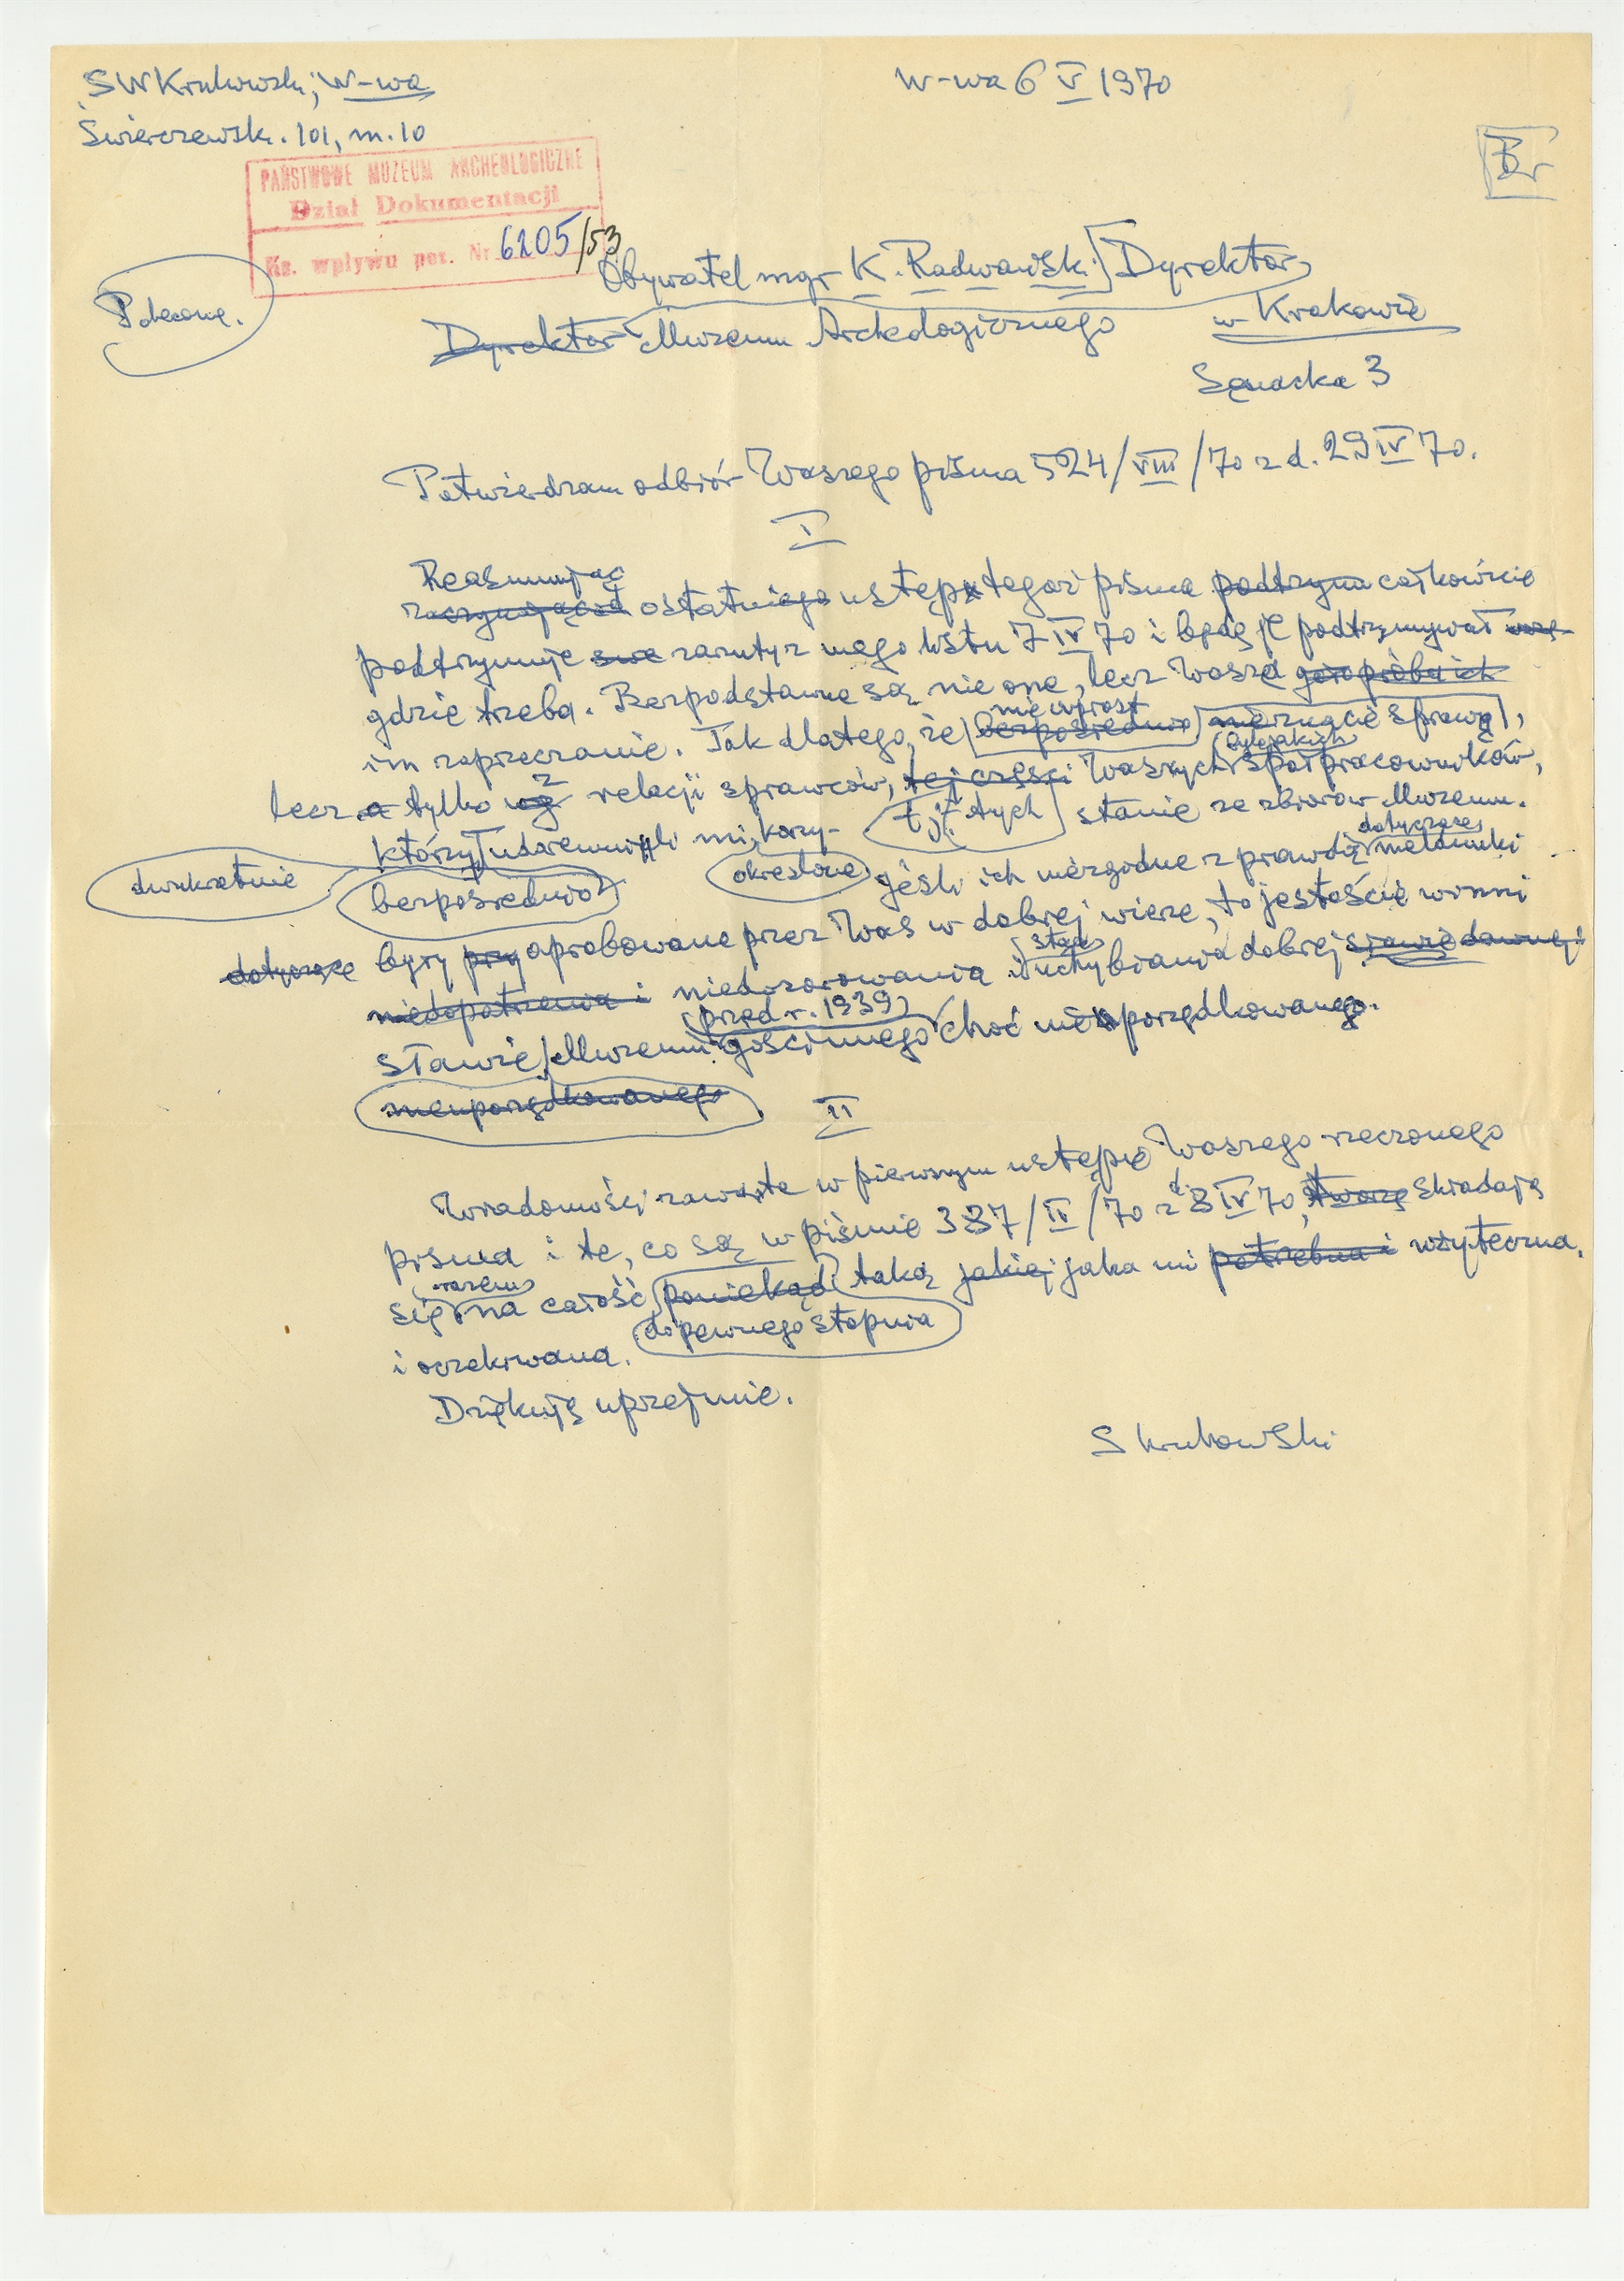 SWKrukowski, W-wa
W-wa 6 V 1970
Świerczewsk. 101, m. 10
Br
PAŃSTWOWE MUZEUM ARCHEOLOGICZNE
Dział Dokumentacji
Ks. wpływu poz. Nr 6205/53
Polecone.
Obywatel mgr K. Radwański Dyrektor
Dyrektor Muzeum Archeologicznego w Krakowie
Senacka 3
Potwierdzam odbiór Waszego pisma 524/VIII/70 z d. 29 IV 70.
I
Reasumując
ostatniego ustęp tegoż pisma podtrzym całkowicie
podtrzymuję swe zarzuty z mego listu 7 IV 70 i będę je podtrzymywał
gdzie trzeba. Bezpodstawne są nie one, lecz Wasze
nie wprost
im zaprzeczanie. Tak dlatego, że bezpośrednio nie znacie sprawy,
byłejakich
lecz a tylko z relacji sprawców, tej części Waszych współpracowników,
którzy udaremnili mi korzy- tj. tych stanie ze zbiorów Muzeum.
dotyczące
dwukrotnie bezpośrednio określone jeśli ich niezgodne z prawdą meldunki
dotyczące były przy aprobowane przez Was w dobrej wierze, to jesteście winni
stąd
niedopatrzenia i niedozorowania i uchybiania dobrej sławie dawnej
przed r. 1939
sławie Muzeum gościnnego choć nieuporządkowanego.
nieuporządkowanego
II
Wiadomości zawarte w pierwszym ustępie Waszego rzeczonego
pisma i te, co są w piśmie 387/II/70 z d. 8 IV 70, tworzą składają
razem
się na całość poniekąd taką jakiej jaka mi potrzebna i użyteczna.
do pewnego stopnia
i oczekiwana.
Dziękuję uprzejmie.
S Krukowski